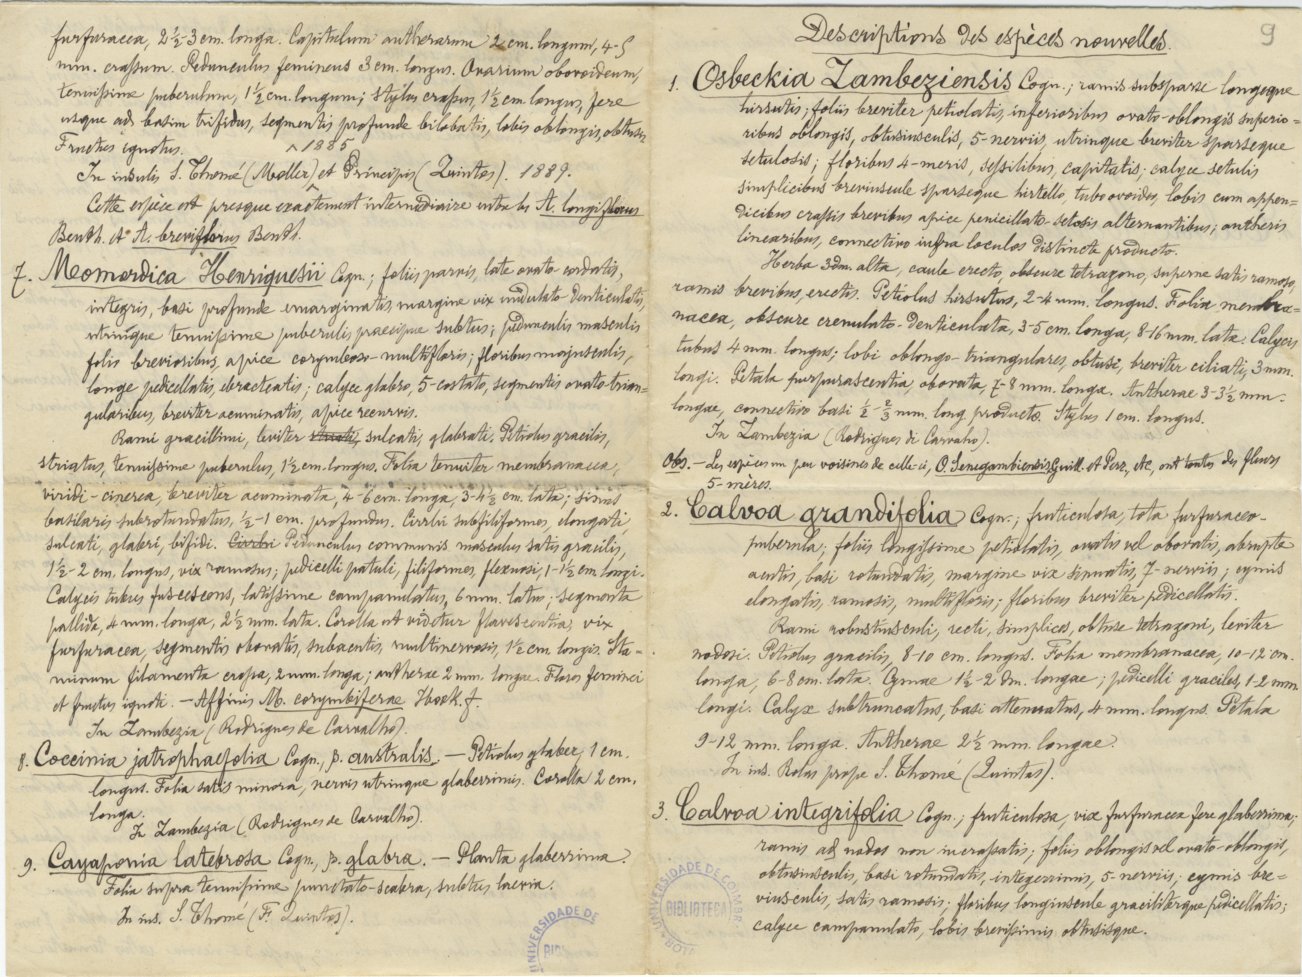 furfuracea, 2½-3 cm. longa. Capitulum antherarum 2 cm. longum, 4-5
mm. crassum. Pedunculus femineus 3 cm. longus. Ovarium obovoideum,
tenuissime puberulum, 1½ cm. longum; stylus crassus, 1½ cm. longus, fere
usque ad basim trifidus, segmentis profunde bilobatis, lobis oblongis, obtusis.
Fructus ignotus.
^ 1885
In insulis S. Thomé (Moller) et Principis (Quintas). 1889.
Cette espèce est presque exactement intermédiaire entre les A. longiflorus
Benth. et A. breviflorus Benth.
7. Momordica Henriquesii Cogn.; foliis parvis, late ovato-cordatis,
integris, basi profunde emarginatis, margine vix undulato-denticulatis,
utrinque tenuissime puberulis praecipue subtus; pedunculis masculis
folis brevioribus, apice corymboso-multifloris; floribus majusculis,
longe pedicellatis, ebracteatis; calyce glabro, 5-costato, segmentis ovato-trian-
gularibus, breviter acuminatis, apice recurvis.
Rami gracillimi, leviter striati, sulcati, glabrati. Petiolus gracilis,
striatus, tenuissime puberulus, 1½ cm. longus. Folia tenuiter membranacea,
viridi-cinerea, breviter acuminata, 4-6 cm. longa, 3-4½ cm. lata; sinus
basilaris subrotundatus, ½-1 cm. profundus. Cirrhi subfiliformes, elongati,
sulcati, glabri, bifidi. Cirrhi Pedunculus communis masculus satis gracilis,
1½-2 cm. longus, vix ramosus; pedicelli patuli, filiformes, flexuosi, 1-1½ cm. longi.
Calycis tubus fuscescens, latissime campanulatus, 6 mm. latus; segmenta
pallida, 4 mm. longa, 2½ mm. lata. Corolla ut videtur flavescentia, vix
furfuracea, segmentis obovatis, subacutis, multinervosis, 1½ cm. longis. Sta-
minum filamenta crassa, 2 mm. longa; antherae 2 mm. longae. Flores feminei
et fructus ignoti. — Affinis M. corymbiferae Hook. f.
In Zambezia (Rodrigues de Carvalho).
8. Coccinia jatrophaefolia Cogn., β. australis. — Petiolus glaber, 1 cm.
longus. Folia satis minora, nervis utrinque glaberrimis. Corolla 2 cm.
longa.
In Zambezia (Rodrigues de Carvalho).
9. Cayaponia latebrosa Cogn., β. glabra. — Planta glaberrima.
Folia supra tenuissime punctato-scabra, subtus laevia.
In ins. S. Thomé (F. Quintas).
UNIVERSIDADE DE
9
Descriptions des espèces nouvelles.
1. Osbeckia Zambeziensis Cogn.; ramis subsparse longeque
hirsutis; foliis breviter petiolatis, inferioribus ovato-oblongis superio-
ribus oblongis, obtusiusculis, 5-nerviis, utrinque breviter sparseque
setulosis; floribus 4-meris, sessilibus, capitatis; calyce setulis
simplicibus breviuscule sparseque hirtello, tubo ovoideo, lobis cum appen-
dicibus crassis brevibus apice penicillato-setosis alternantibus; antheris
linearibus, connectivo infra loculos distincte producto.
Herba 3 dm. alta, caule erecto, obscure tetragono, superne satis ramoso,
ramis brevibus, erectis. Petiolus hirsutus, 2-4 mm. longus. Folia membra-
nacea, obscure crenulato-denticulata, 3-5 cm. longa, 8-16 mm. lata. Calycis
tubus 4 mm. longus; lobi oblongo-triangulares, obtusi, breviter ciliati, 3 mm.
longi. Petala purpurascentia, obovata, 7-8 mm. longa. Antherae 3-3½ mm.
longae, connectivo basi ½-⅔ mm. long. producto. Stylus 1 cm. longus.
In Zambezia (Rodrigues di Carvalho).
Obs. — Les espèces un peu voisines de celle-ci, O. Senegambiensis Guill. et Perr., etc, ont toutes des fleurs
5-mères.
2. Calvoa grandifolia Cogn.; fruticulosa, tota furfuraceo-
puberula; foliis longissime petiolatis, ovatis vel obovatis, abrupte
acutis, basi rotundatis, margine vix sinuatis, 7-nerviis; cymis
elongatis, ramosis, multifloris; floribus breviter pedicellatis.
Rami robustiusculi, recti, simplices, obtuse tetragoni, leviter
nodosi. Petiolus gracilis, 8-10 cm. longus. Folia membranacea, 10-12 cm.
longa, 6-8 cm. lata. Cymae 1½-2 dm. longae; pedicelli graciles, 1-2 mm
longi. Calyx subtruncatus, basi attenuatus, 4 mm. longus. Petala
9-12 mm. longa. Antherae 2½ mm. longae.
In ins. Rolas prope S. Thomé (Quintas).
3. Calvoa integrifolia Cogn.; fruticulosa, vix furfuracea fere glaberrima;
ramis ad nodos non incrassatis; foliis oblongis vel ovato-oblongis,
obtusiusculis, basi rotundatis, integerrimis, 5-nerviis; cymis bre-
viusculis, satis ramosis; floribus longiuscule graciliterque pedicellatis;
calyce campanulato, lobis brevissimis obtusisque.
UNIVERSIDADE DE COIMBR
BIBLIOTECA